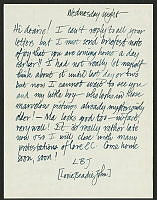 Wednesday night -
Hi dearie! I can't reply to all your
letters but I must send briefest note of
joy that you are coming home a day
earlier!! I had not really let myself
think about it until last day or two
but now I cannot wait to see you
and my little boy - who looks in these
marvelous pictures already
old - He looks good too - in fact,
very well! It is really rather late
now so I will close with many
protestations of love EC. Come home
soon, soon!
LBJ